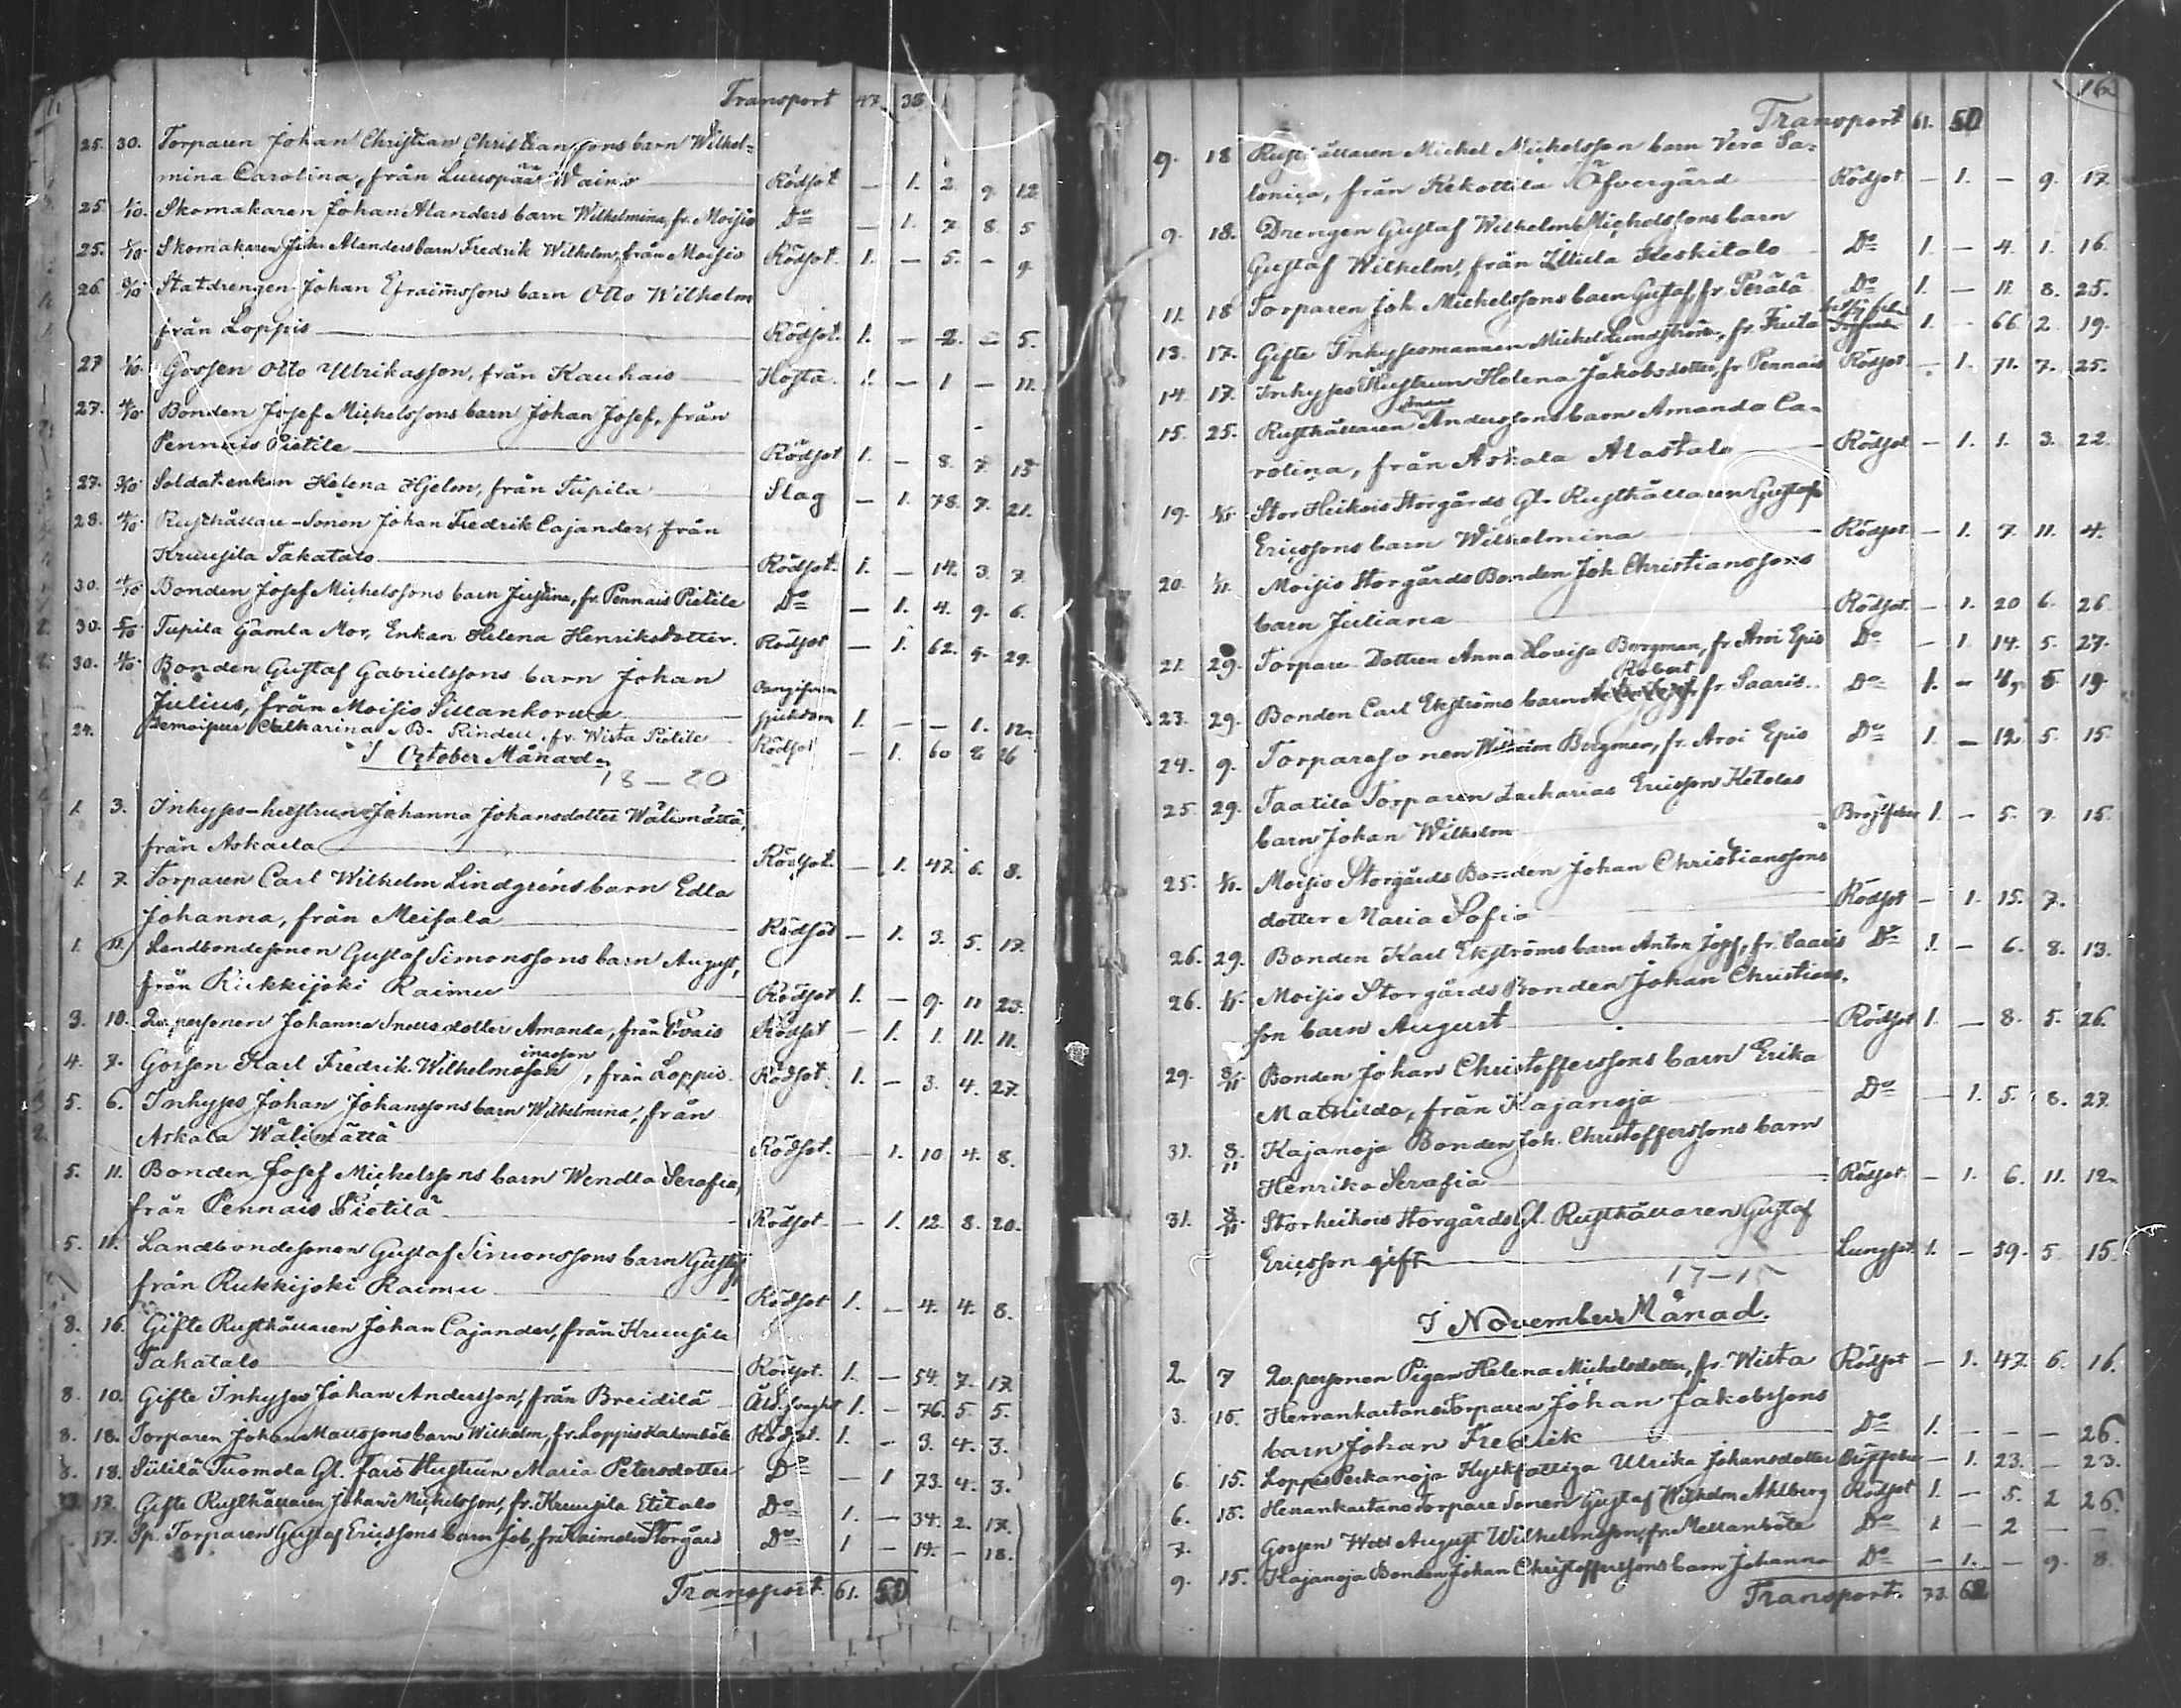 Transport 47. 38
25. 30. Torparen Johan Christian Christianssons barn Wilhel-
mina Carolina, från Luuspää Wainio Rödsot — 1. 2. 9. 12.
25. 1/10. Skomakaren Johan Alanders barn Wilhelmina, fr. Moisio Do — 1. 7. 8. 5
25. 1/10. Skomakaren Joh: Alanders barn Fredrik Wilhelm, från Moisio Rödsot. 1. — 5. — 9.
26. Statdrengen Johan Efraimssons barn Otto Wilhelm
från Loppis Rödsot. 1. — 2. — 5.
27 1/10. Gossen Otto Ulrikasson, från Kauhais Hosta. 1. — 1 — 11.
27. 4/10. Bonden Josef Michelssons barn Johan Josef, från
Pennais Pietile Rödsot 1. — 8. 7. 15
27. 3/10 Soldat enkan Helena Hjelm, från Tupila Slag — 1. 78. 7. 21.
28. 4/10 Rusthållare-Sonen Johan Fredrik Cajander, från
Kruusila Takatalo Rödsot. 1. — 14. 3. 7.
30. 4/10 Bonden Josef Michelssons barn Justina, fr. Pennais Pietile Do — 1. 4. 9. 6.
30. 5/10 Tupila Gamla Mor, Enkan Helena Henriksdotter. Rödsot — 1. 62. 9. 29.
30. 4/10. Bonden Gustaf Gabrielssons barn Johan
Julius, från Moisio Sillankorva sjukdom 1. — — 1. 12.
24. Catharina B. Rindell, fr. Wista Pietile Rödsot — 1. 60 8 26
I October Månad.
18 — 20
1. 3. Inhyses-hustrun Johanna Johansdotter Wälimättä,
från Askala Rödsot. — 1. 47. 6. 8.
1. 7. Torparen Carl Wilhelm Lindgréns barn Edla
Johanna, från Meisala Rödsot — 1. 3. 5. 17.
1. 11. Landbondesonen Gustaf Simonssons barn August,
från Rukkijoki Raimu Rödsot 1. — 9. 11 23.
3. 10. Qv.personen Johanna dotter Amanda, från Rödsot — 1. 1. 11. 11.
4. 7. Gossen Karl Fredrik Wilhelminasson, från Loppis. Rödsot. 1. — 3. 4. 27.
5. 6. Inhyses Johan Johanssons barn Wilhelmina, från
Askala Wälimättä Rödsot. — 1. 10. 4. 8.
5. 11. Bonden Josef Michelssons barn Wendla Serafia,
från Pennais Pietilä Rödsot — 1. 12. 8. 20.
5. 11. Landbondesonen Gustaf Simonssons barn Gustaf
från Rukkijoki Raimu Rödsot 1. — 4. 4. 8.
8. 16. Gifte Rusthållaren Johan Cajander, från Kruusila
Takatalo Rödsot. 1. — 54. 7. 17.
8. 10. Gifte Inhyses Johan Andersson, från Breidilä 1. — 76. 5. 5.
8. 18. Torparen Johan Matssons barn Wilhelm, fr. Loppis Rödsot. 1. — 3. 4. 3.
8. 18. Sülilä Tuomola Gl. fars Hustrun Maria Petersdotter Do — 1 73. 4. 3.
17. Gifte Rusthållaren Johan Michelsson, fr. Kruusila Etitalo Do 1. — 34. 2. 17.
17. Sp. Torparen Gustaf Ericssons barn Job, från Storgård Do 1 — 14. — 18.
Transport. 61. 50
162
Transport 61. 50
9. 18 Rusthållaren Michel Michelsson barn Vera Sa-
lonica, från Kekottila Öfvergård Rödsot — 1. — 9. 17.
9. 18. Drengen Gustaf Wilhelm Michelssons barn
Gustaf Wilhelm, från Keskitalo Do 1. — 4. 1. 16.
11. 18 Torparen Joh. Michelssons barn Gustaf, fr. Perälä Do 1. — 11. 8. 25.
13. 17. Gifte Inhysesmannen Michel Lundström, fr. 1. — 66. 2. 19.
14. 17. Inhyses Hustrun Helena Jakobsdotter, fr Pennais Rödsot. — 1. 71. 7. 25.
15. 25. Rusthållaren Anderssons barn Amanda Ca-
rolina, från Askala Alastalo Rödsot — 1. 1. 3. 22.
19. Stor Heikois Storgårds Gl. Rusthållaren Gustaf
Ericssons barn Wilhelmina Rödsot. — 1. 7. 11. 4.
20. Moisio Storgårds Bonden Joh. Christianssons
barn Juliana Rödsot. — 1. 20 6. 26.
21. 29. Torpare Dottren Anna Lovisa Bergman, fr. Aroi Epis Do — 1. 14. 5. 27.
Robert
23. 29. Bonden Carl Ekströms barn fr. Saaris.. Do 1. — 4. 5 19
24. 9. Torparesonen Wilhelm Bergman, fr. Aroi Epis Do 1. — 12. 5. 15
25. 29. Taatila Torparen Zacharias Ericsson Ketolas
barn Johan Wilhelm Bröstfeber 1. — 5. 7. 15.
25. Moisio Storgårds Bonden Johan Christianssons
dotter Maria Sofia Rödsot — 1. 15. 7.
26. 29. Bonden Karl Ekströms barn Anton Josef, fr. Saaris Do 1. — 6. 8. 13.
26. Moisio Storgårds Bonden Johan Christians-
son barn August Rödsot 1. — 8. 5. 26.
29. 3/11. Bonden Johan Christofferssons barn Erika
Mathilda, från Kajanoja Do — 1. 5. 8. 27.
31. 3/11 Kajanoja Bonden Joh. Christofferssons barn
Henrika Serafia Rödsot. — 1. 6. 11. 12.
31. 3/11. Storheikois Storgårds Gl. Rusthållaren Gustaf
Ericsson gift Lungsot. 1. — 59. 5. 15.
I November Månad.
2. 7 Qv.personen Pigan Helena Michelsdotter, fr. Wista Rödsot — 1. 47. 6. 16.
3. 15. Herrankartano Torparen Johan Jakobssons
barn Johan Fredrik Do 1. — — — 26.
6. 15. Loppis Perkanoja Kyrkfattiga Ulrika Johansdotter Bröstfeber — 1. 23. — 23.
6. 15. Herrankartano Torpare Sonen Gustaf Wilhelm Ahlberg Rödsot 1. — 5. 2 26.
7. Gossen August Wilhelmsson, fr. Do 1 — 2 — —
9. 15. Kajanoja Bonden Johan Christofferssons barn Johanna Do — 1. — 9. 8.
Transport. 73. 62